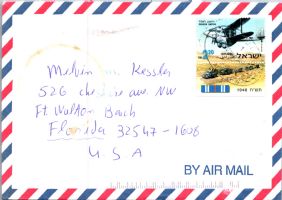 Melvin M. Kessler
526 Cheshire ave. NW
Ft. Walton Beach
Florida 32547-1608
U S A
ישראל
1948
BY AIR MAIL